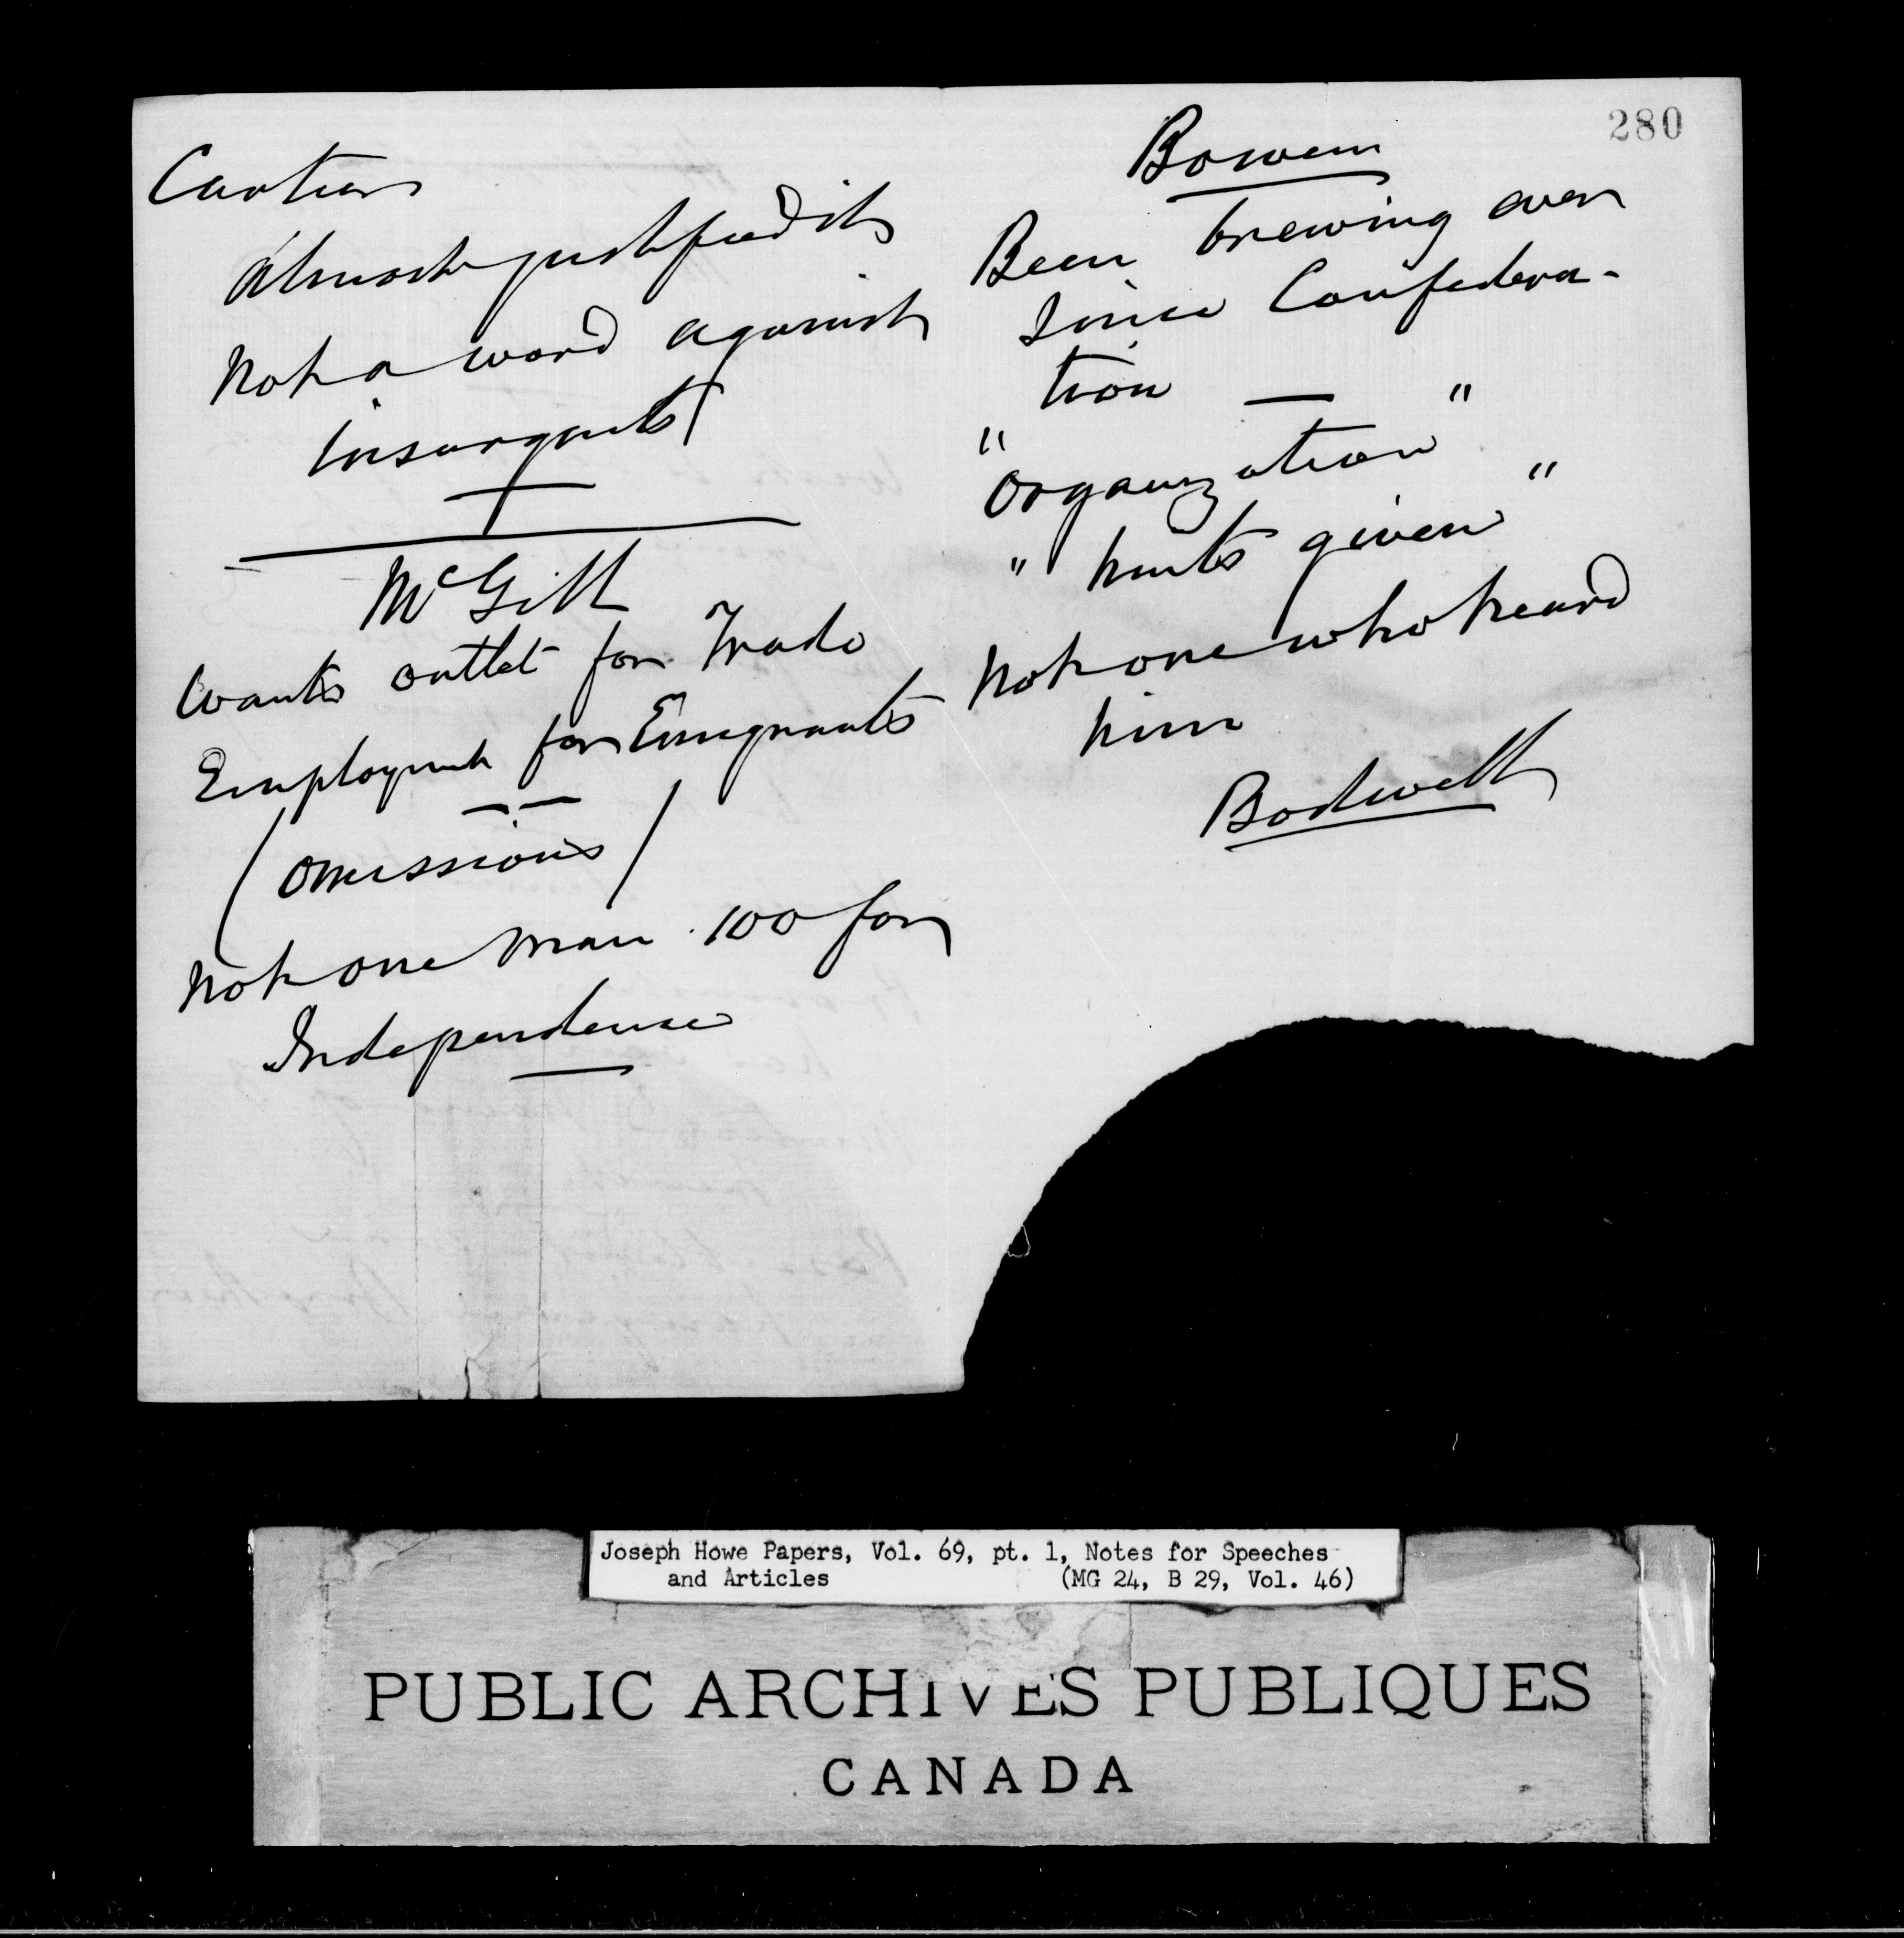 Cartier
Almost justified its
Not a word against
insurgents
McGill
Wants outlet for Trade
Employmt for Emigrants
(Omissions)
Not one man 100 for
Independence
280
Bowen
Been brewing ever
since Confedera-
tion —
"Organization"
"hints given"
Not one who heard
him
Bodwell
Joseph Howe Papers, Vol. 69, pt. 1, Notes for Speeches
and Articles (MG 24, B 29, Vol. 46)
PUBLIC ARCHIVES PUBLIQUES
CANADA